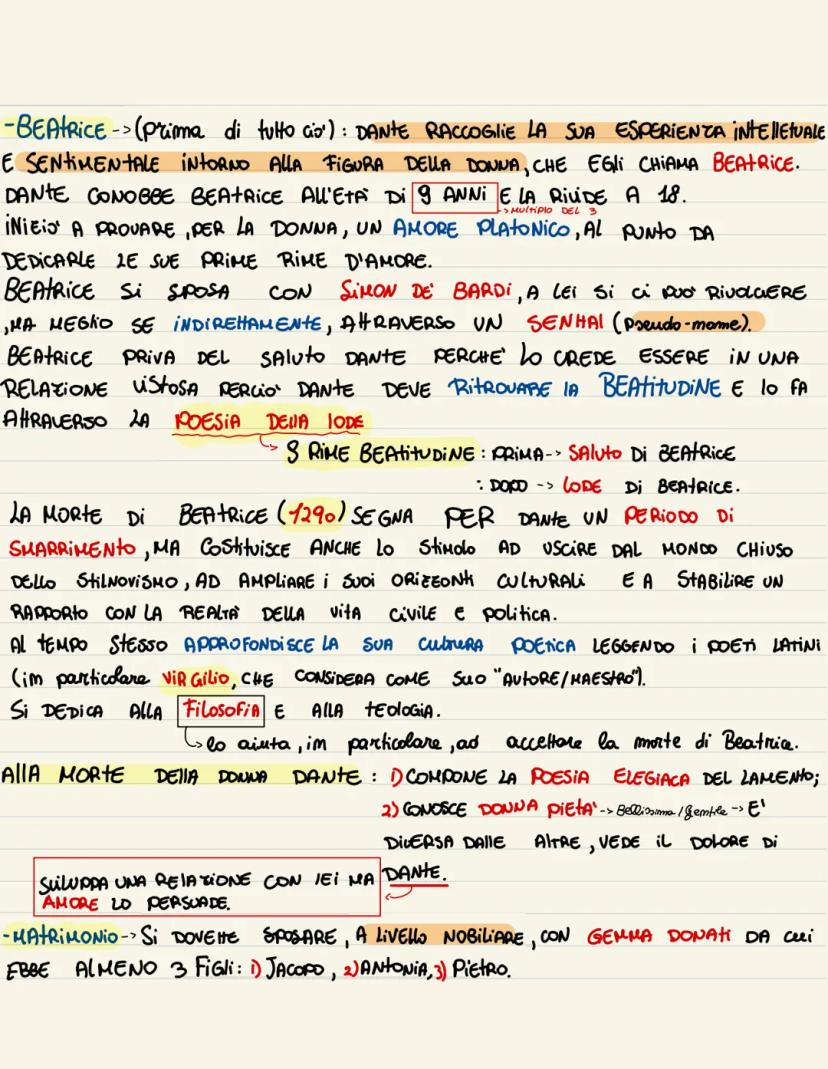 -BEATRICE -> (prima di tutto ciò): DANTE RACCOGLIE LA SUA ESPERIENZA INTELLETUALE
E SENTIMENTALE INTORNO ALLA FIGURA DELLA DONNA, CHE EGLI CHIAMA BEATRICE.
DANTE CONOBBE BEATRICE ALL'ETÀ DI 9 ANNI E LA RIVIDE A 18.
-> MULTIPLO DEL 3
INIZIÒ A PROVARE, PER LA DONNA, UN AMORE PLATONICO, AL PUNTO DA
DEDICARLE LE SUE PRIME RIME D'AMORE.
BEATRICE SI SPOSA CON SIMON DE' BARDI, A LEI SI CI PUÒ RIVOLGERE
, MA MEGLIO SE INDIRETTAMENTE, ATTRAVERSO UN SENHAl (pseudo-nome).
BEATRICE PRIVA DEL SALUTO DANTE PERCHÈ LO CREDE ESSERE IN UNA
RELAZIONE VISTOSA PERCIÒ DANTE DEVE RITROVARE lA BEATITUDINE E lO FA
ATTRAVERSO LA POESIA DEllA lODE
9 RIME BEATITUDINE: PRIMA--> SALUTO DI BEATRICE
: DOPO --> LODE DI BEATRICE.
LA MORTE DI BEATRICE (1290) SEGNA PER DANTE UN PERIODO DI
SMARRIMENTO, MA COSTITUISCE ANCHE LO STIMOLO AD USCIRE DAL MONDO CHIUSO
DELLO STILNOVISMO, AD AMPLIARE I SUOI ORIZZONTI CULTURALI E A STABILIRE UN
RAPPORTO CON LA REALTÀ DELLA VITA CIVILE E POLITICA.
Al TEMPO STESSO APPROFONDISCE LA SUA CULTURA POETICA LEGGENDO I POETI LATINI
(in particolare VIRGILIO, CHE CONSIDERA COME SUO "AUTORE/MAESTRO").
SI DEDICA ALLA FILOSOFIA E ALLA TEOLOGIA.
lo aiuta, in particolare, ad accettare la morte di Beatrice.
AllA MORTE DEllA DONNA DANTE: 1) COMPONE LA POESIA ELEGIACA DEL LAMENTO;
2) CONOSCE DONNA PIETÀ --> Bellissima/Gentile --> E'
DIVERSA DALLE ALTRE, VEDE IL DOLORE DI
DANTE.
SVILUPPA UNA RELAZIONE CON lEI MA
AMORE LO PERSUADE.
-MATRIMONIO -> SI DOVETTE SPOSARE, A LIVELLO NOBILIARE, CON GEMMA DONATI DA CUI
EBBE ALMENO 3 FIGLI: 1) JACOPO, 2) ANTONIA, 3) PIETRO.